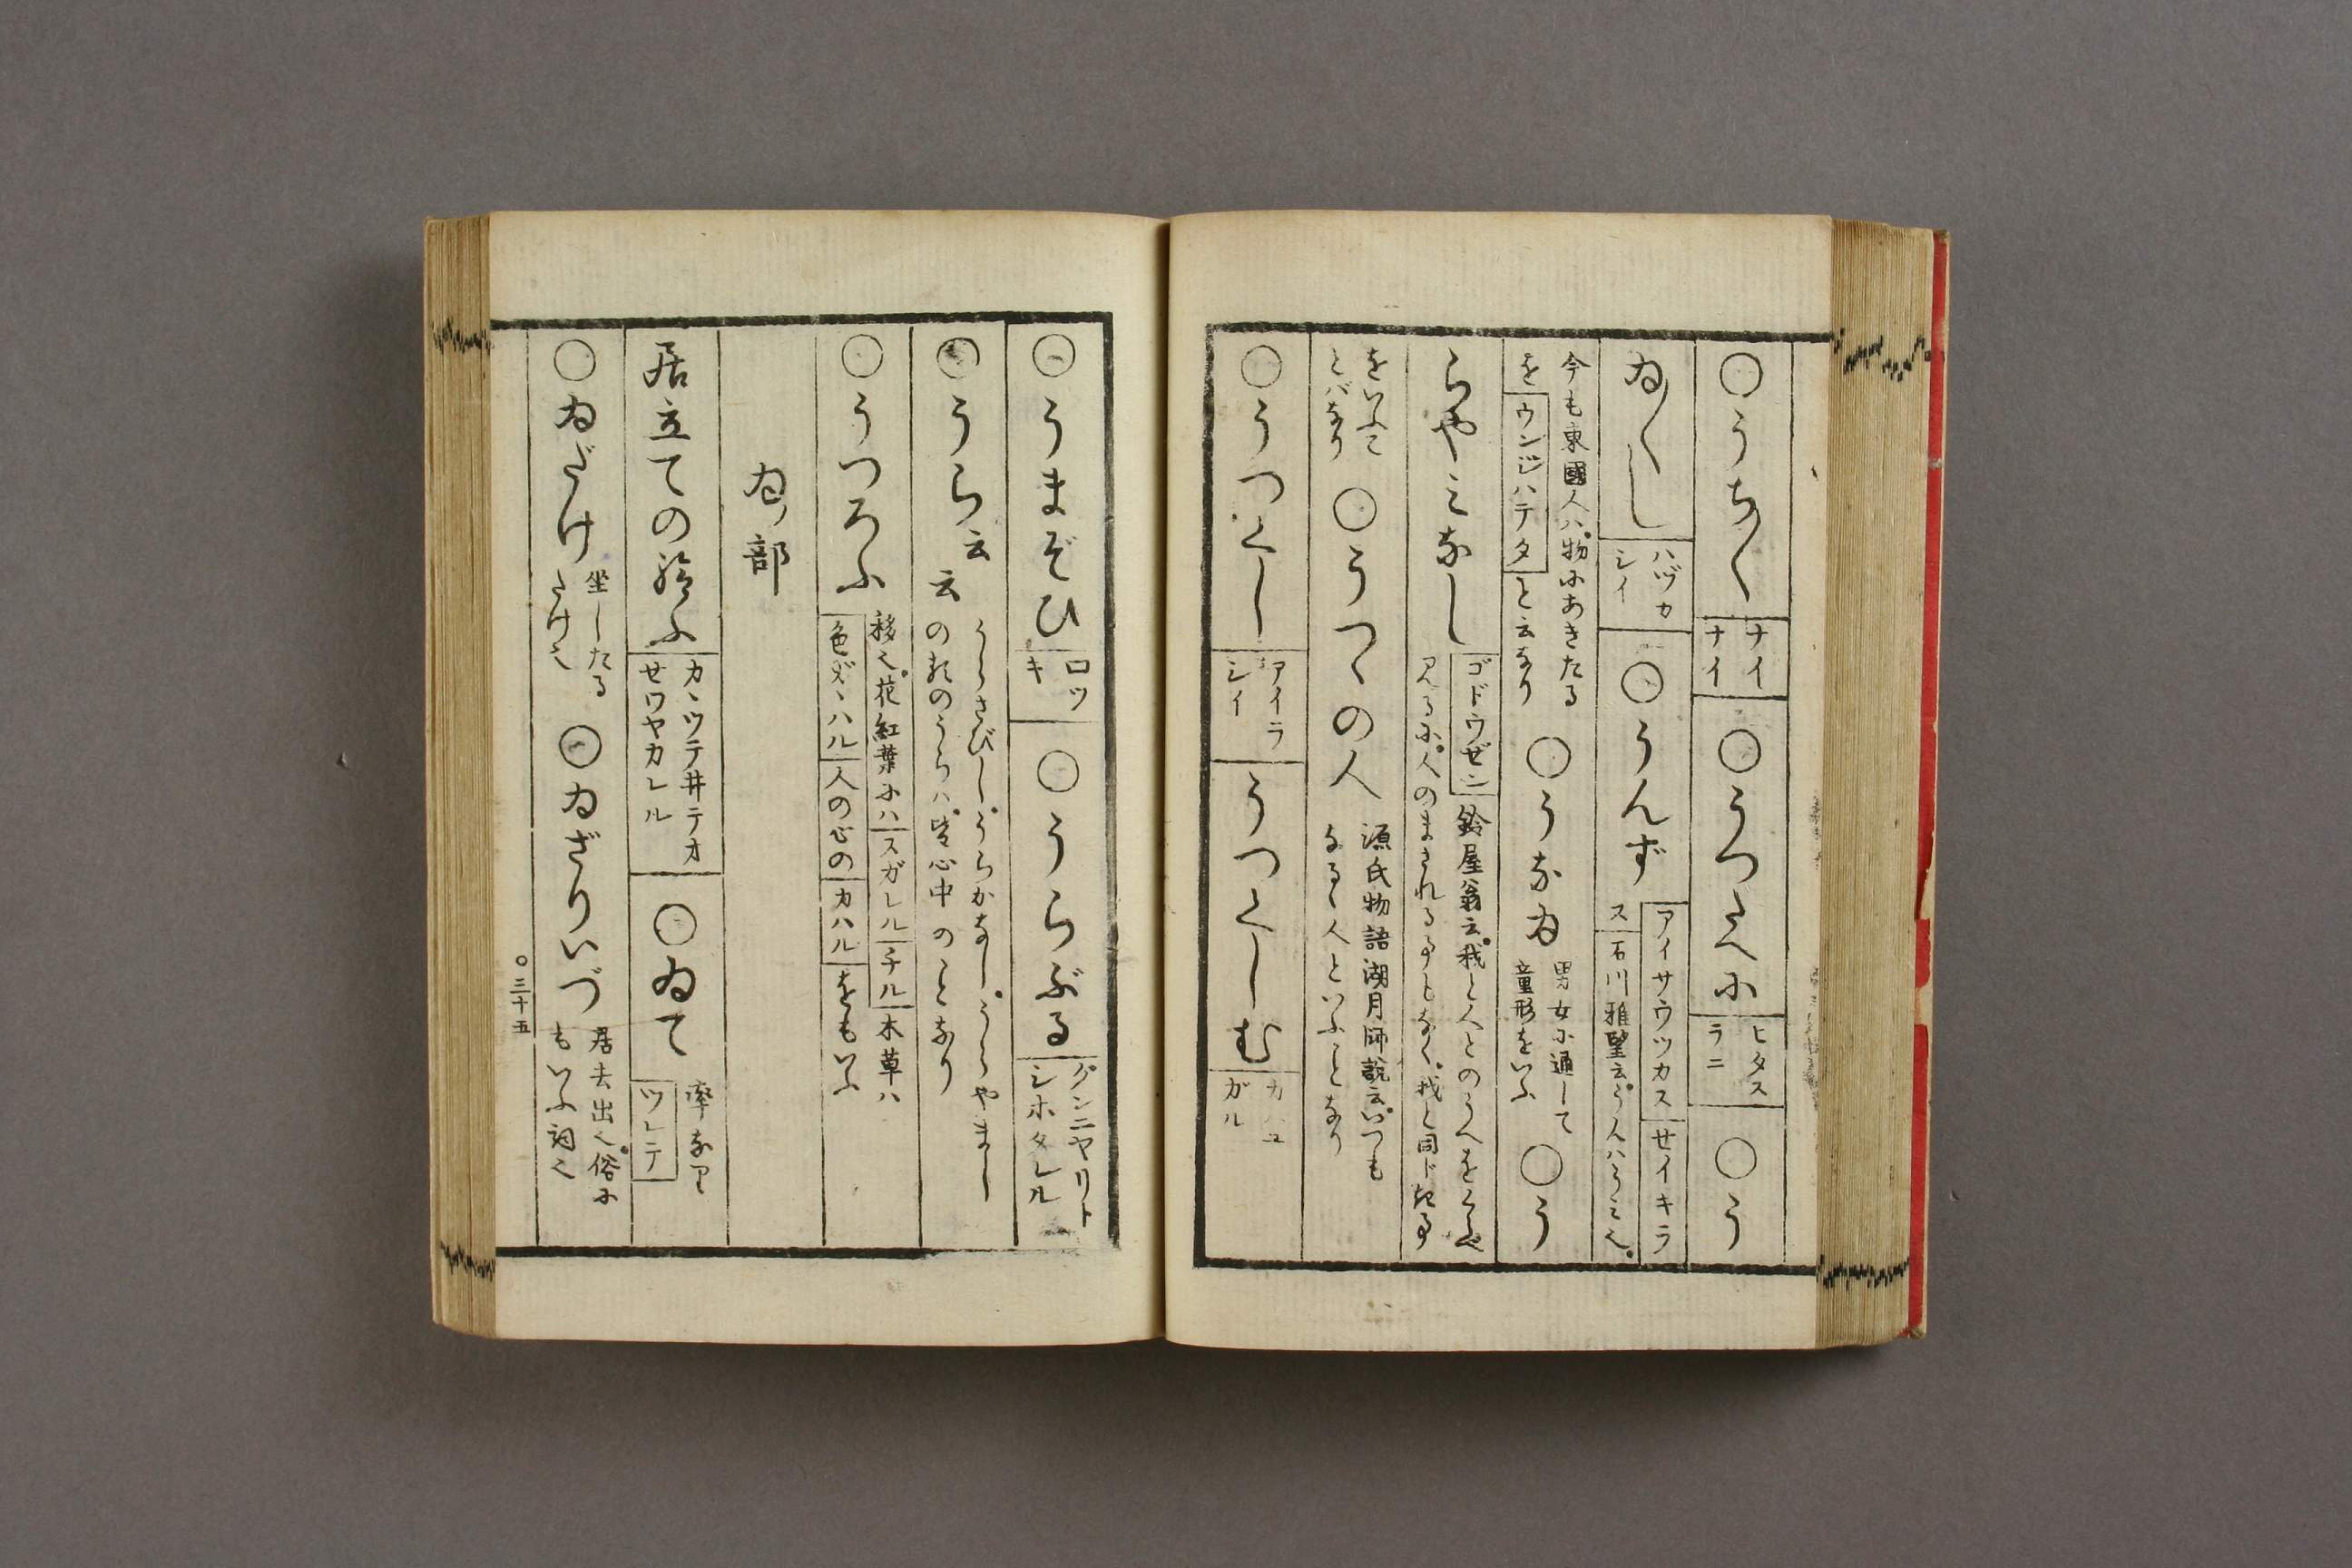 ○うち〳〵 ナイナイ ○うつたへに ヒタスラニ ○う
ゐ〳〵し ハヅカシイ ○うんず アイサウツカス せイキラス 石川雅望云うん八うみ也
今も東國人ハ物にあきたるを ウンジハテタ と云なり ○うなゐ 男女に通して童形をいふ ○う
らやミなし ゴドウぜン 鈴屋翁云我と人とのうへをくらべ見るに人のまされる事もなく我と同ド程なる事
をいふことバなり ○うつゝの人 源氏物語湖月師説云いつもなるゝ人といふことなり
○うつくし アイラシイ うつくしむ カハユガル
○うまぞひ ロツキ ○うらぶる グンニヤリト シホタレル
○うら云云 うらさびしうらかなしうらやましの類のうらハ皆心中のことなり
○うつろふ 移也花紅葉にハ スガレル チル 木草ハ 色ガヽハル 人の心の カハル をもいふ
ゐノ部
居立ての給ふ カヽツテ井テオせワヤカレル ○ゐて 率なり ツレテ
○ゐだけ 坐したるたけ也 ○ゐざりいづ 居去出也俗にもいふ詞也
○三十五